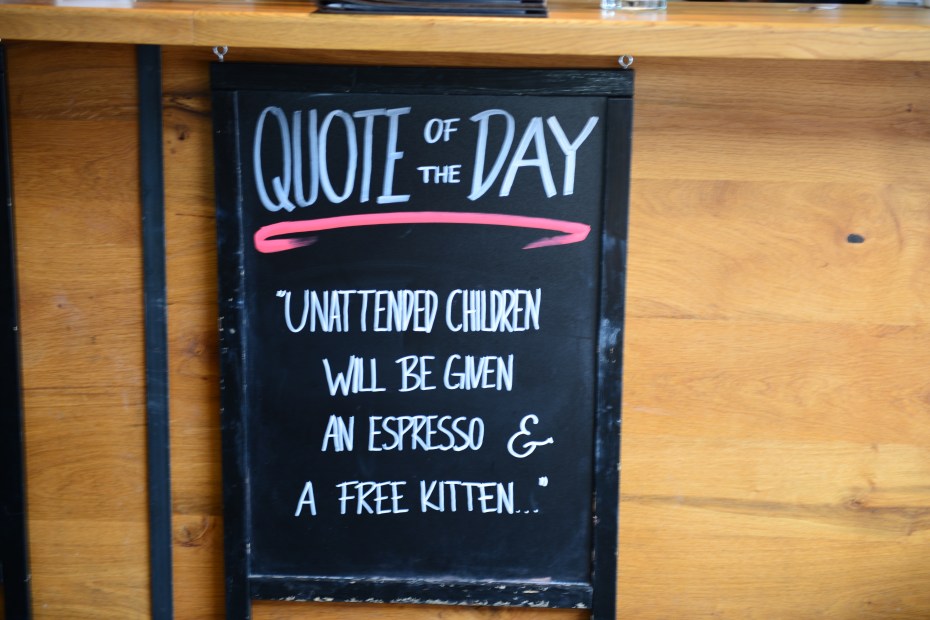 QUOTE OF THE DAY
"UNATTENDED CHILDREN
WILL BE GIVEN
AN ESPRESSO &
A FREE KITTEN..."